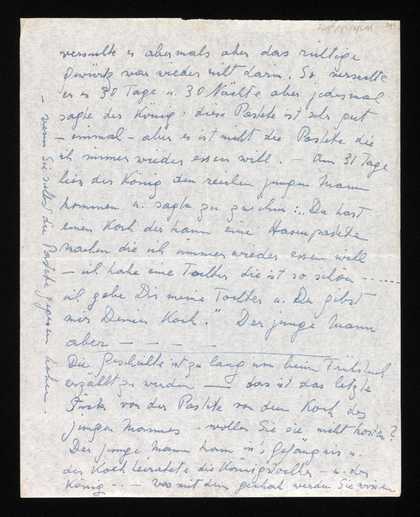 versuchte es abermals aber das richtige
Gewürz war wieder nicht darin. So versuchte
er es 30 Tage u. 30 Nächte aber jedesmal
sagte der König: diese Pastete ist sehr gut
– einmal – aber es ist nicht die Pastete die
ich immer wieder essen will. – Am 31 Tage
lies der König den reichen jungen Mann
kommen u. sagte zu ihm: „Du hast
einen Koch der kann eine Hasenpastete
machen die ich immer wieder essen will
– ich habe eine Tochter die ist so schön ......
ich gebe Dir meine Tochter u. Du gibst
mir Deinen Koch." Der junge Mann
aber – – – –
Die Geschichte ist zu lang um beim Frühstück
erzählt zu werden – das ist das letzte
Stück von der Pastete von dem Koch des
jungen Mannes. wollen Sie sie nicht kosten?
Der junge Mann kam in's Gefängnis u.
der Koch heiratete die Königstochter – u. der
König ... – was mit dem geschah werden Sie wissen
– wenn Sie selbst die Pastete gegessen haben.